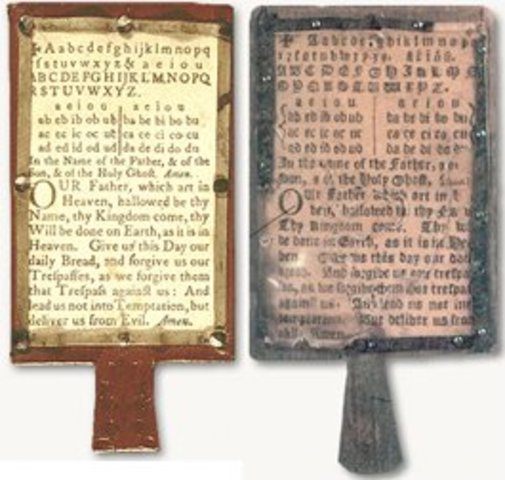 ✠Aabcdefghijklmnopq
rſstuvwxyz& a e i o u
ABCDEFGHIJKLMNOPQ
RSTUVWXYZ.
a e i o u
a e i o u
ab eb ib ob ub
ba be bi bo bu
ac ec ic oc uc
ca ce ci co cu
ad ed id od ud
da de di do du
In the Name of the Father, & of the
Son, & of the Holy Ghoſt. Amen.
OUR Father, which art in
Heaven, hallowed be thy
Name, thy Kingdom come, thy
Will be done on Earth, as it is in
Heaven. Give us this Day our
daily Bread, and forgive us our
Treſpaſſes, as we forgive them
that Treſpaſs againſt us: And
lead us not into Temptation, but
deliver us from Evil. Amen.
✠ Aabcdefghiklmnop
a e i o u
a e i o u
ab eb ib ob ub
ba be bi bo bu
ac ec ic oc uc
ca ce ci co cu
ad ed id od ud
da de di do du
In the Name of the Father,
of the Holy Ghoſt,
OUr Father which art in
hallowed be thy
Thy Kingdom come. Thy
be done in Earth, as it is in
us this day our
Bread. And forgive us our treſpaſ
as we forgive them that treſpaſs
againſt us: And lead us not into
temptation, But deliver us from
Amen